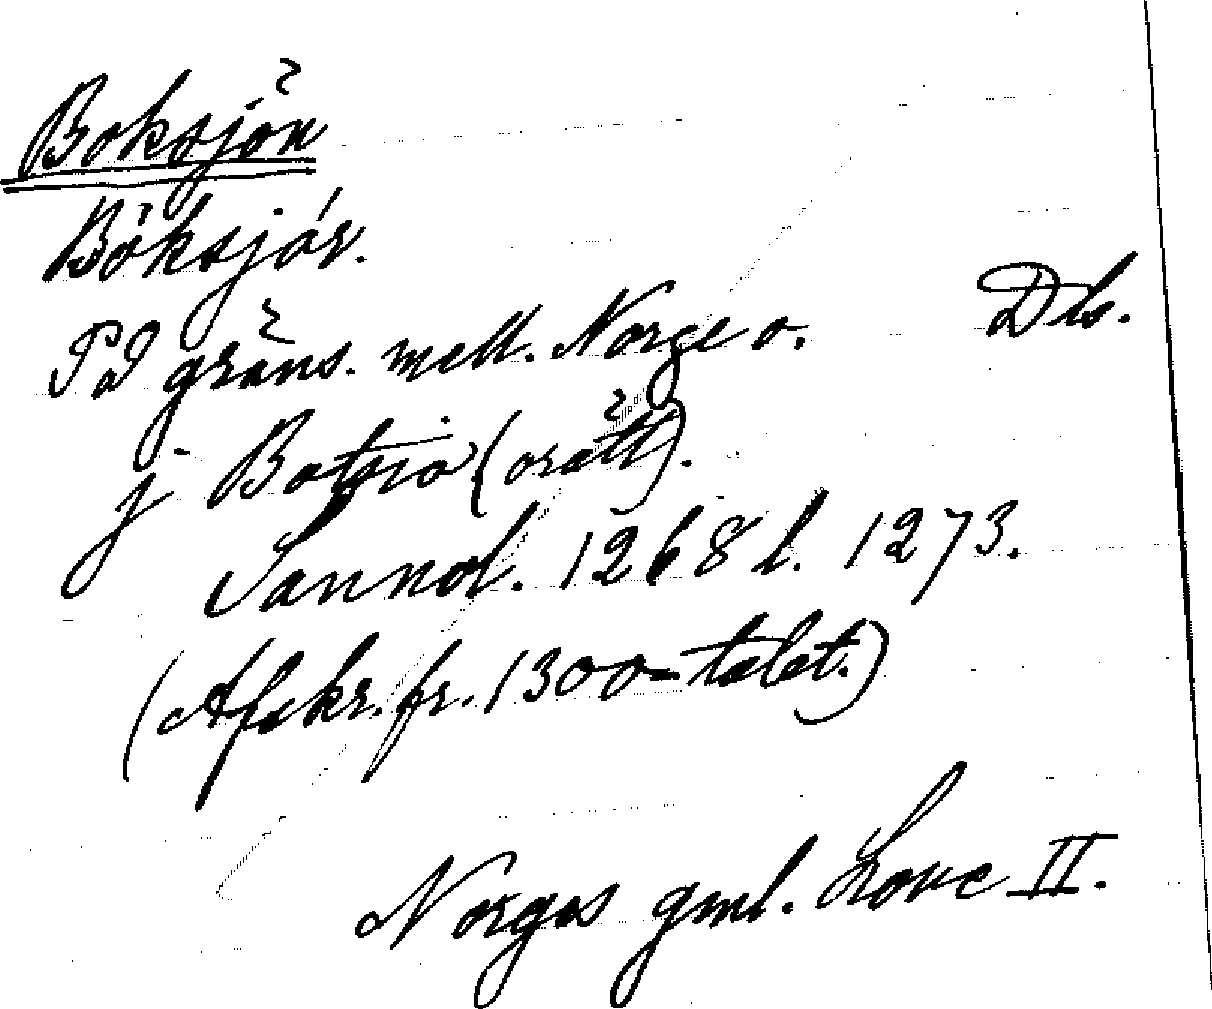 Boksjön
Böksjór.
På gräns. mell. Norge o. Dls.
j Botsio (orätt).
Sannol. 1268 l. 1273.
(Afskr. fr. 1300-talet.)
Norges gml. Love II.